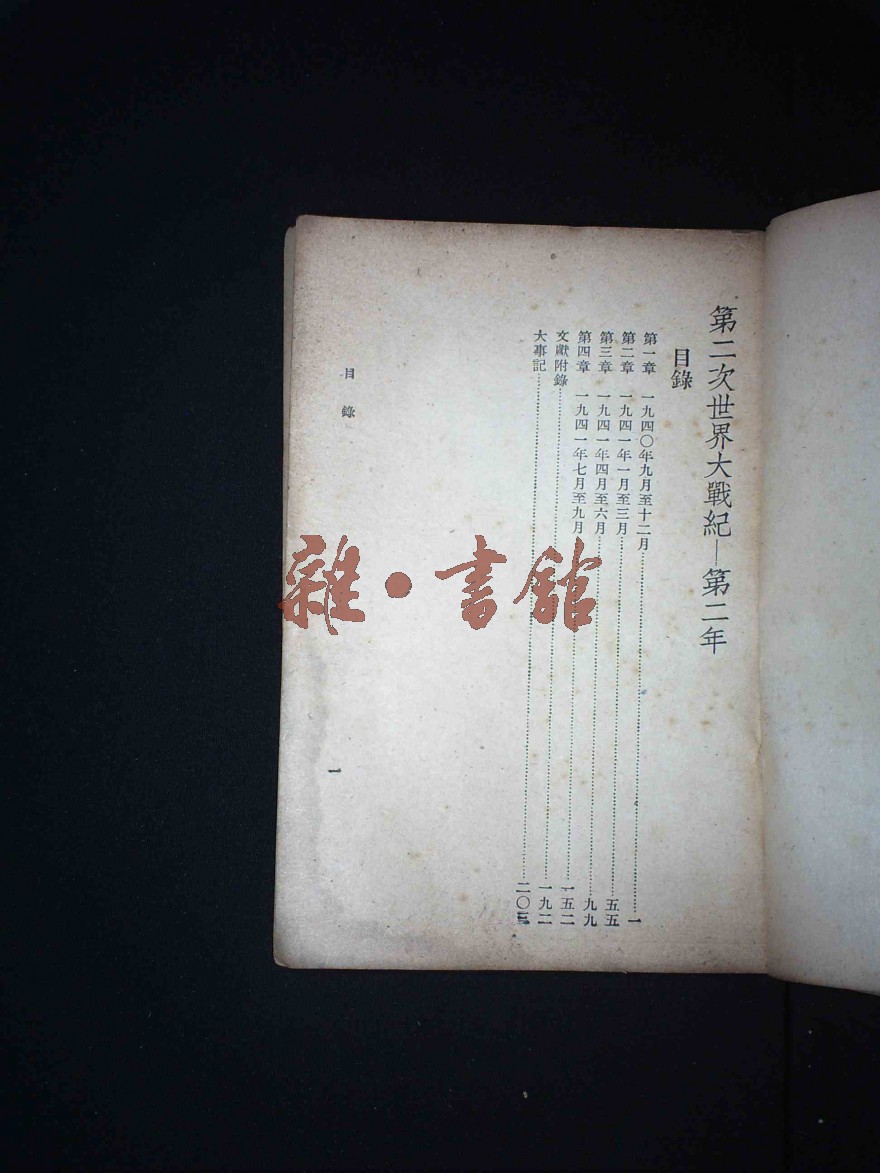 第二次世界大戰紀—第二年
目錄
第一章 一九四〇年九月至十二月……一
第二章 一九四一年一月至三月……五五
第三章 一九四一年四月至六月……九九
第四章 一九四一年七月至九月……一五二
文獻附錄……一九二
大事記……二〇三
目錄
一
雜·書館